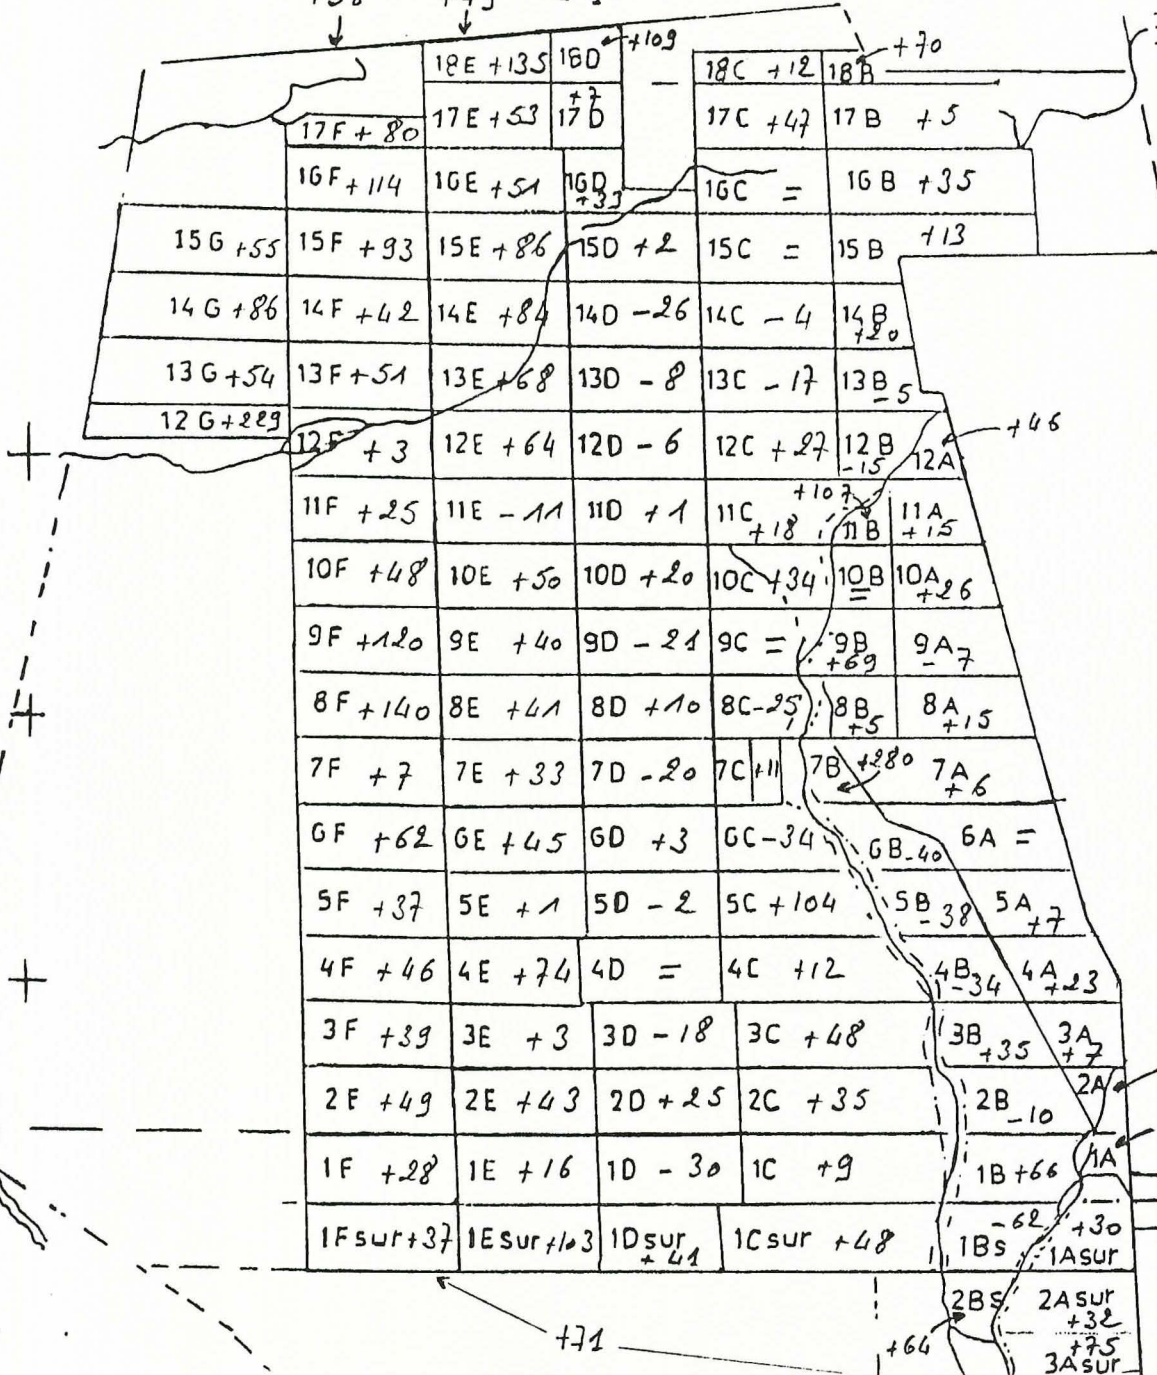 +109
+70
18E +135 18D 18C +12 18B
17F + 80 17E + 53 +7 17D 17C +47 17B +5
16F + 114 16E + 51 16D +33 16C = 16B +35
15G +55 15F + 93 15E + 86 15D + 2 15C = 15B +13
14G +86 14F +42 14E +84 14D -26 14C - 4 14B +20
13G +54 13F + 51 13E +68 13D - 8 13C - 17 13B - 5
12G +229 12F + 3 12E + 64 12D - 6 12C + 27 12B -15 12A +46
11F + 25 11E - 11 11D + 1 11C +18 +107 11B 11A +15
10F +48 10E + 50 10D + 20 10C +34 10B = 10A +26
9F +120 9E +40 9D - 21 9C = 9B +69 9A - 7
8F +140 8E +41 8D +10 8C-25 8B +5 8A +15
7F + 7 7E + 33 7D - 20 7C +11 7B +280 7A + 6
6F +62 6E + 45 6D +3 6C-34 6B-40 6A =
5F +37 5E + 1 5D - 2 5C + 104 5B - 38 5A +7
4F + 46 4E + 74 4D = 4C +12 4B -34 4A +23
3F +39 3E + 3 3D - 18 3C + 48 3B +35 3A +7
2F +49 2E + 43 2D + 25 2C + 35 2B -10 2A
1F +28 1E + 16 1D - 30 1C +9 1B +66 1A
1F sur +37 1E sur +103 1D sur + 41 1C sur +48 1Bs -62 +30 1A sur
2Bs 2A sur +32
+71 +64 +75
3A sur